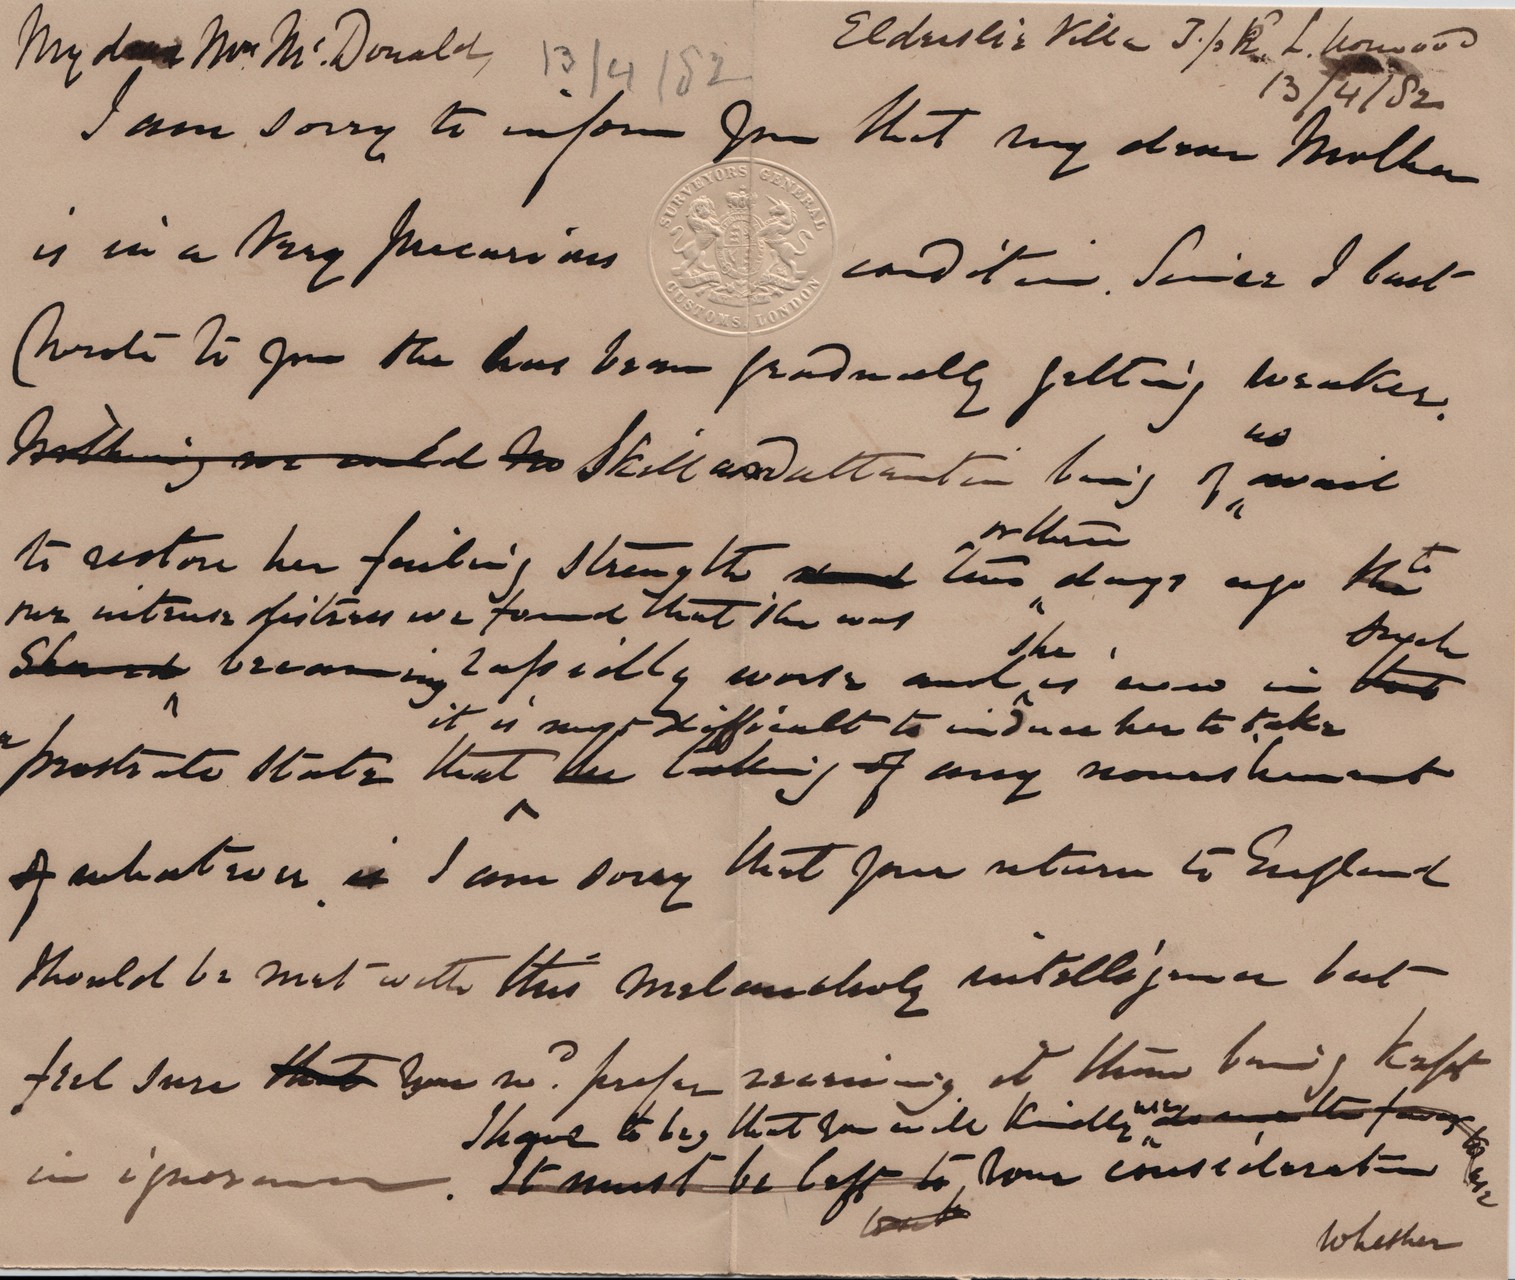 Elderslie Villa T. L. Norwood
13/4/82
My dear Mrs. McDonald, 13/4/82
I am sorry to inform you that my dear Mother
is in a very precarious condition. Since I last
SURVEYORS GENERAL
CUSTOMS LONDON
wrote to you she has been gradually getting weaker.
Nothing we could no Skill and attention being of no avail
to restore her failing strength and two or three days ago the to
our intense distress we found that she was
showed becoming rapidly worse and she is now in that such
it is most difficult to induce her to take
a prostrate state that the taking of any nourishment
of whatever. is I am sorry that your return to England
should be met with this melancholy intelligence but
feel sure that you wd. prefer receiving it than being kept
I have to beg that you will kindly do me the favor
in ignorance. It must be left to your consideration
but
Whether